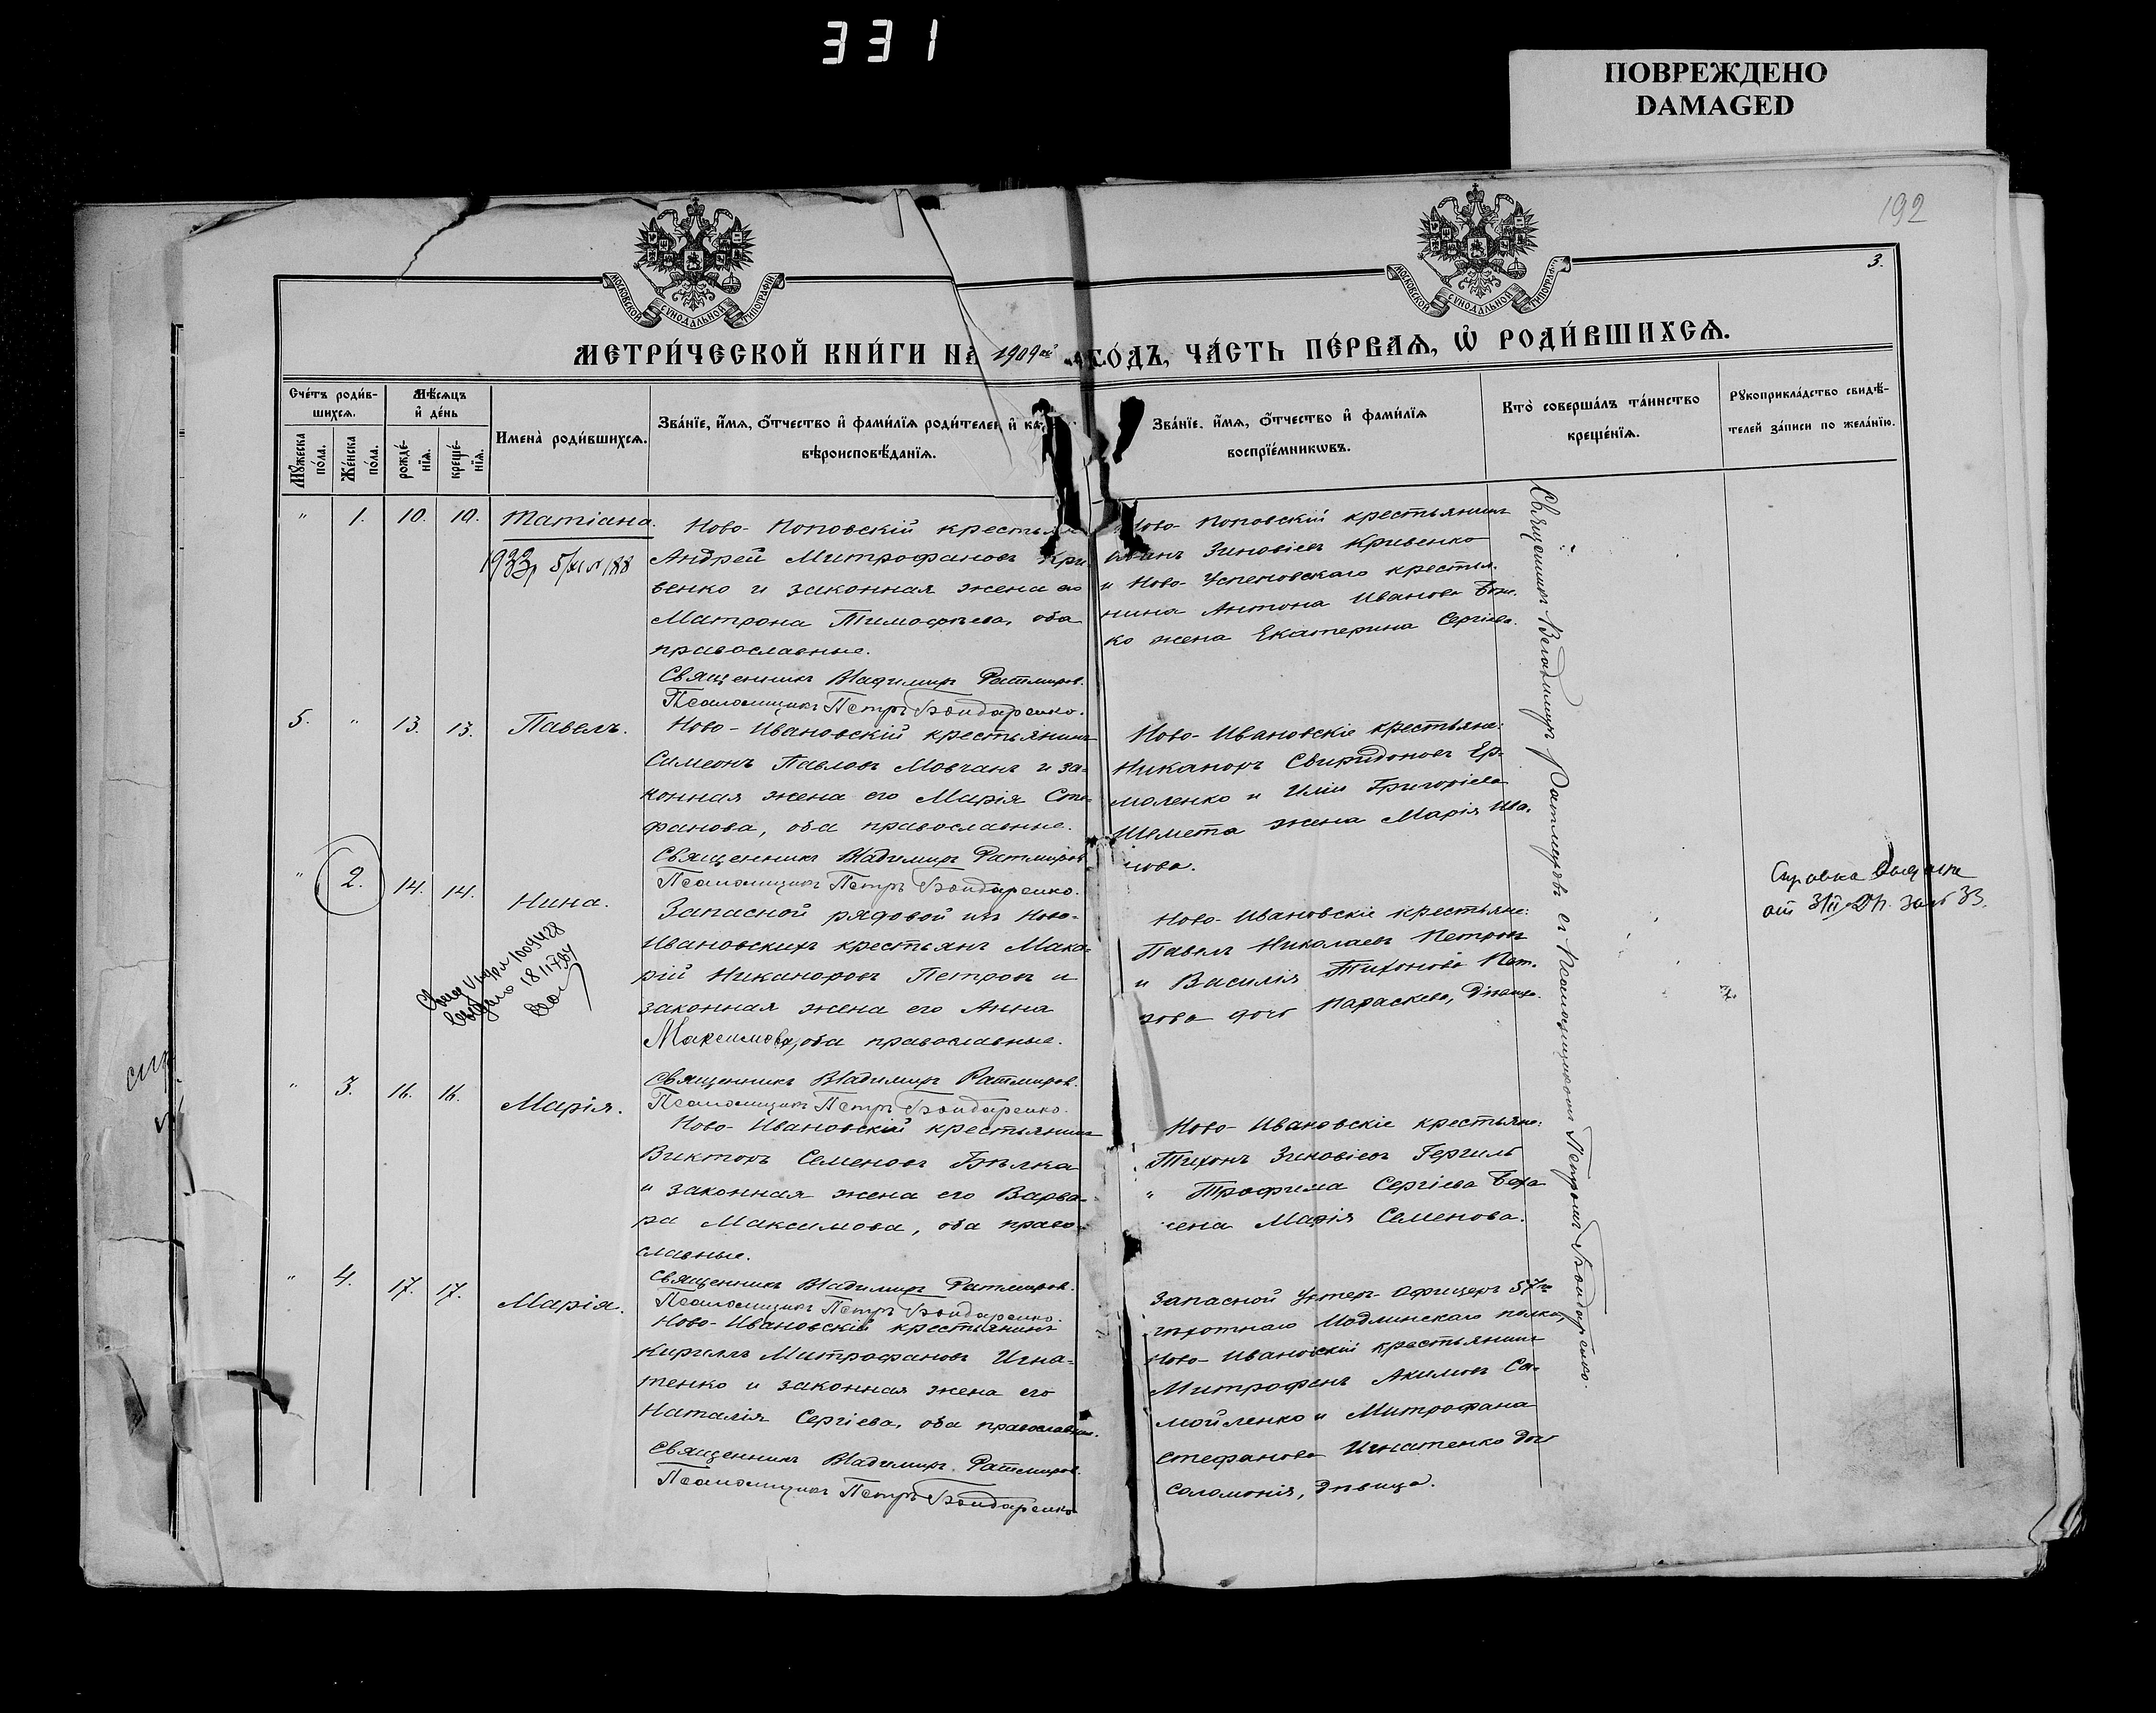 331
ПОВРЕЖДЕНО
DAMAGED
192
3.
МОСКОВСКОЙ СѴНОДАЛЬНОЙ ТИПОГРАФІИ
МОСКОВСКОЙ СѴНОДАЛЬНОЙ ТИПОГРАФІИ
МЕТРИ́ЧЕСКОЙ КНИ́ГИ НА 1909й ГО́ДЪ, ЧА́СТЬ ПЕ́РВАѦ, Ѡ҆ РОДИ́ВШИХСѦ.
Сче́тъ роди́в-
шихсѧ.
Мѣ́сѧцъ
и҆ де́нь
Мꙋ́жеска
по́ла.
Же́нска
по́ла.
рожде́-
нїѧ.
креще́-
нїѧ.
Имена̀ роди́вшихсѧ.
Зва́нїе, и҆́мѧ, ѻ҆́тчество и҆ фами́лїѧ роди́телей и҆ ка-
вѣроисповѣ́данїѧ.
Зва́нїе, и҆́мѧ, ѻ҆́тчество и҆ фами́лїѧ
воспрїе́мникѡвъ.
Кто̀ соверша́лъ та́инство
креще́нїѧ.
Рꙋкоприкла́дство свидѣ́-
телей за́писи по жела́нїю.
" 1. 10. 10. Татіана.
1933
Ново-Поповскій крестья
Андрей Митрофановъ Кри
венко и законная жена его
Матрона Тимофѣева, оба
православные.
Священникъ Владимиръ Ратмировъ.
Псаломщикъ Петръ Бондаренко.
Ново-Поповскій крестьянинъ
Зиновіевъ Кривенко
и Ново-Успеновскаго крестья-
нина Антона Иванова
ко жена Екатерина Сергіева.
5. " 13. 13. Павелъ.
Ново-Ивановскій крестьянинъ
Симеонъ Павловъ Мовчанъ и за-
конная жена его Марія Сте-
фанова, оба православные.
Священникъ Владимиръ Ратмировъ
Псаломщикъ Петръ Бондаренко.
Ново-Ивановскіе крестьяне:
Никаноръ Свиридоновъ Ер-
моленко и Иліи Григоріева
Шемета жена Марія Ива-
нова.
" 2. 14. 14. Нина.
Запасной рядовой изъ Ново-
Ивановскихъ крестьянъ Мака-
рій Никаноровъ Петровъ и
законная жена его Анна
Максимова, оба православные.
Священникъ Владимиръ Ратмировъ.
Псаломщикъ Петръ Бондаренко.
Ново-Ивановскіе крестьяне:
Павелъ Николаевъ Петровъ
и Василія Тихонова Пет-
рова дочь Параскева, дѣвица.
Справка выдана
" 3. 16. 16. Марія.
Ново-Ивановскій крестьянинъ
Викторъ Семеновъ Бѣлка
и законная жена его Варва-
ра Максимова, оба право-
славные.
Священникъ Владимиръ Ратмировъ.
Псаломщикъ Петръ Бондаренко.
Ново-Ивановскіе крестьяне:
Тихонъ Зиновіевъ Гергиль
Трофима Сергіева
жена Марія Семенова.
" 4. 17. 17. Марія.
Ново-Ивановскій крестьянинъ
Кириллъ Митрофановъ Игна-
тенко и законная жена его
Наталія Сергіева, оба православные.
Священникъ Владимиръ Ратмировъ.
Псаломщикъ Петръ Бондаренко
Запасной Унтеръ-Офицеръ 57го
пѣхотнаго Модлинскаго полка,
Ново-Ивановскій крестьянинъ
Митрофанъ Акимовъ Са-
мойленко и Митрофана
Стефанова Игнатенко дочь
Соломонія, дѣвица.
Священникъ Владимиръ Ратмировъ съ Псаломщикомъ Петромъ Бондаренко.